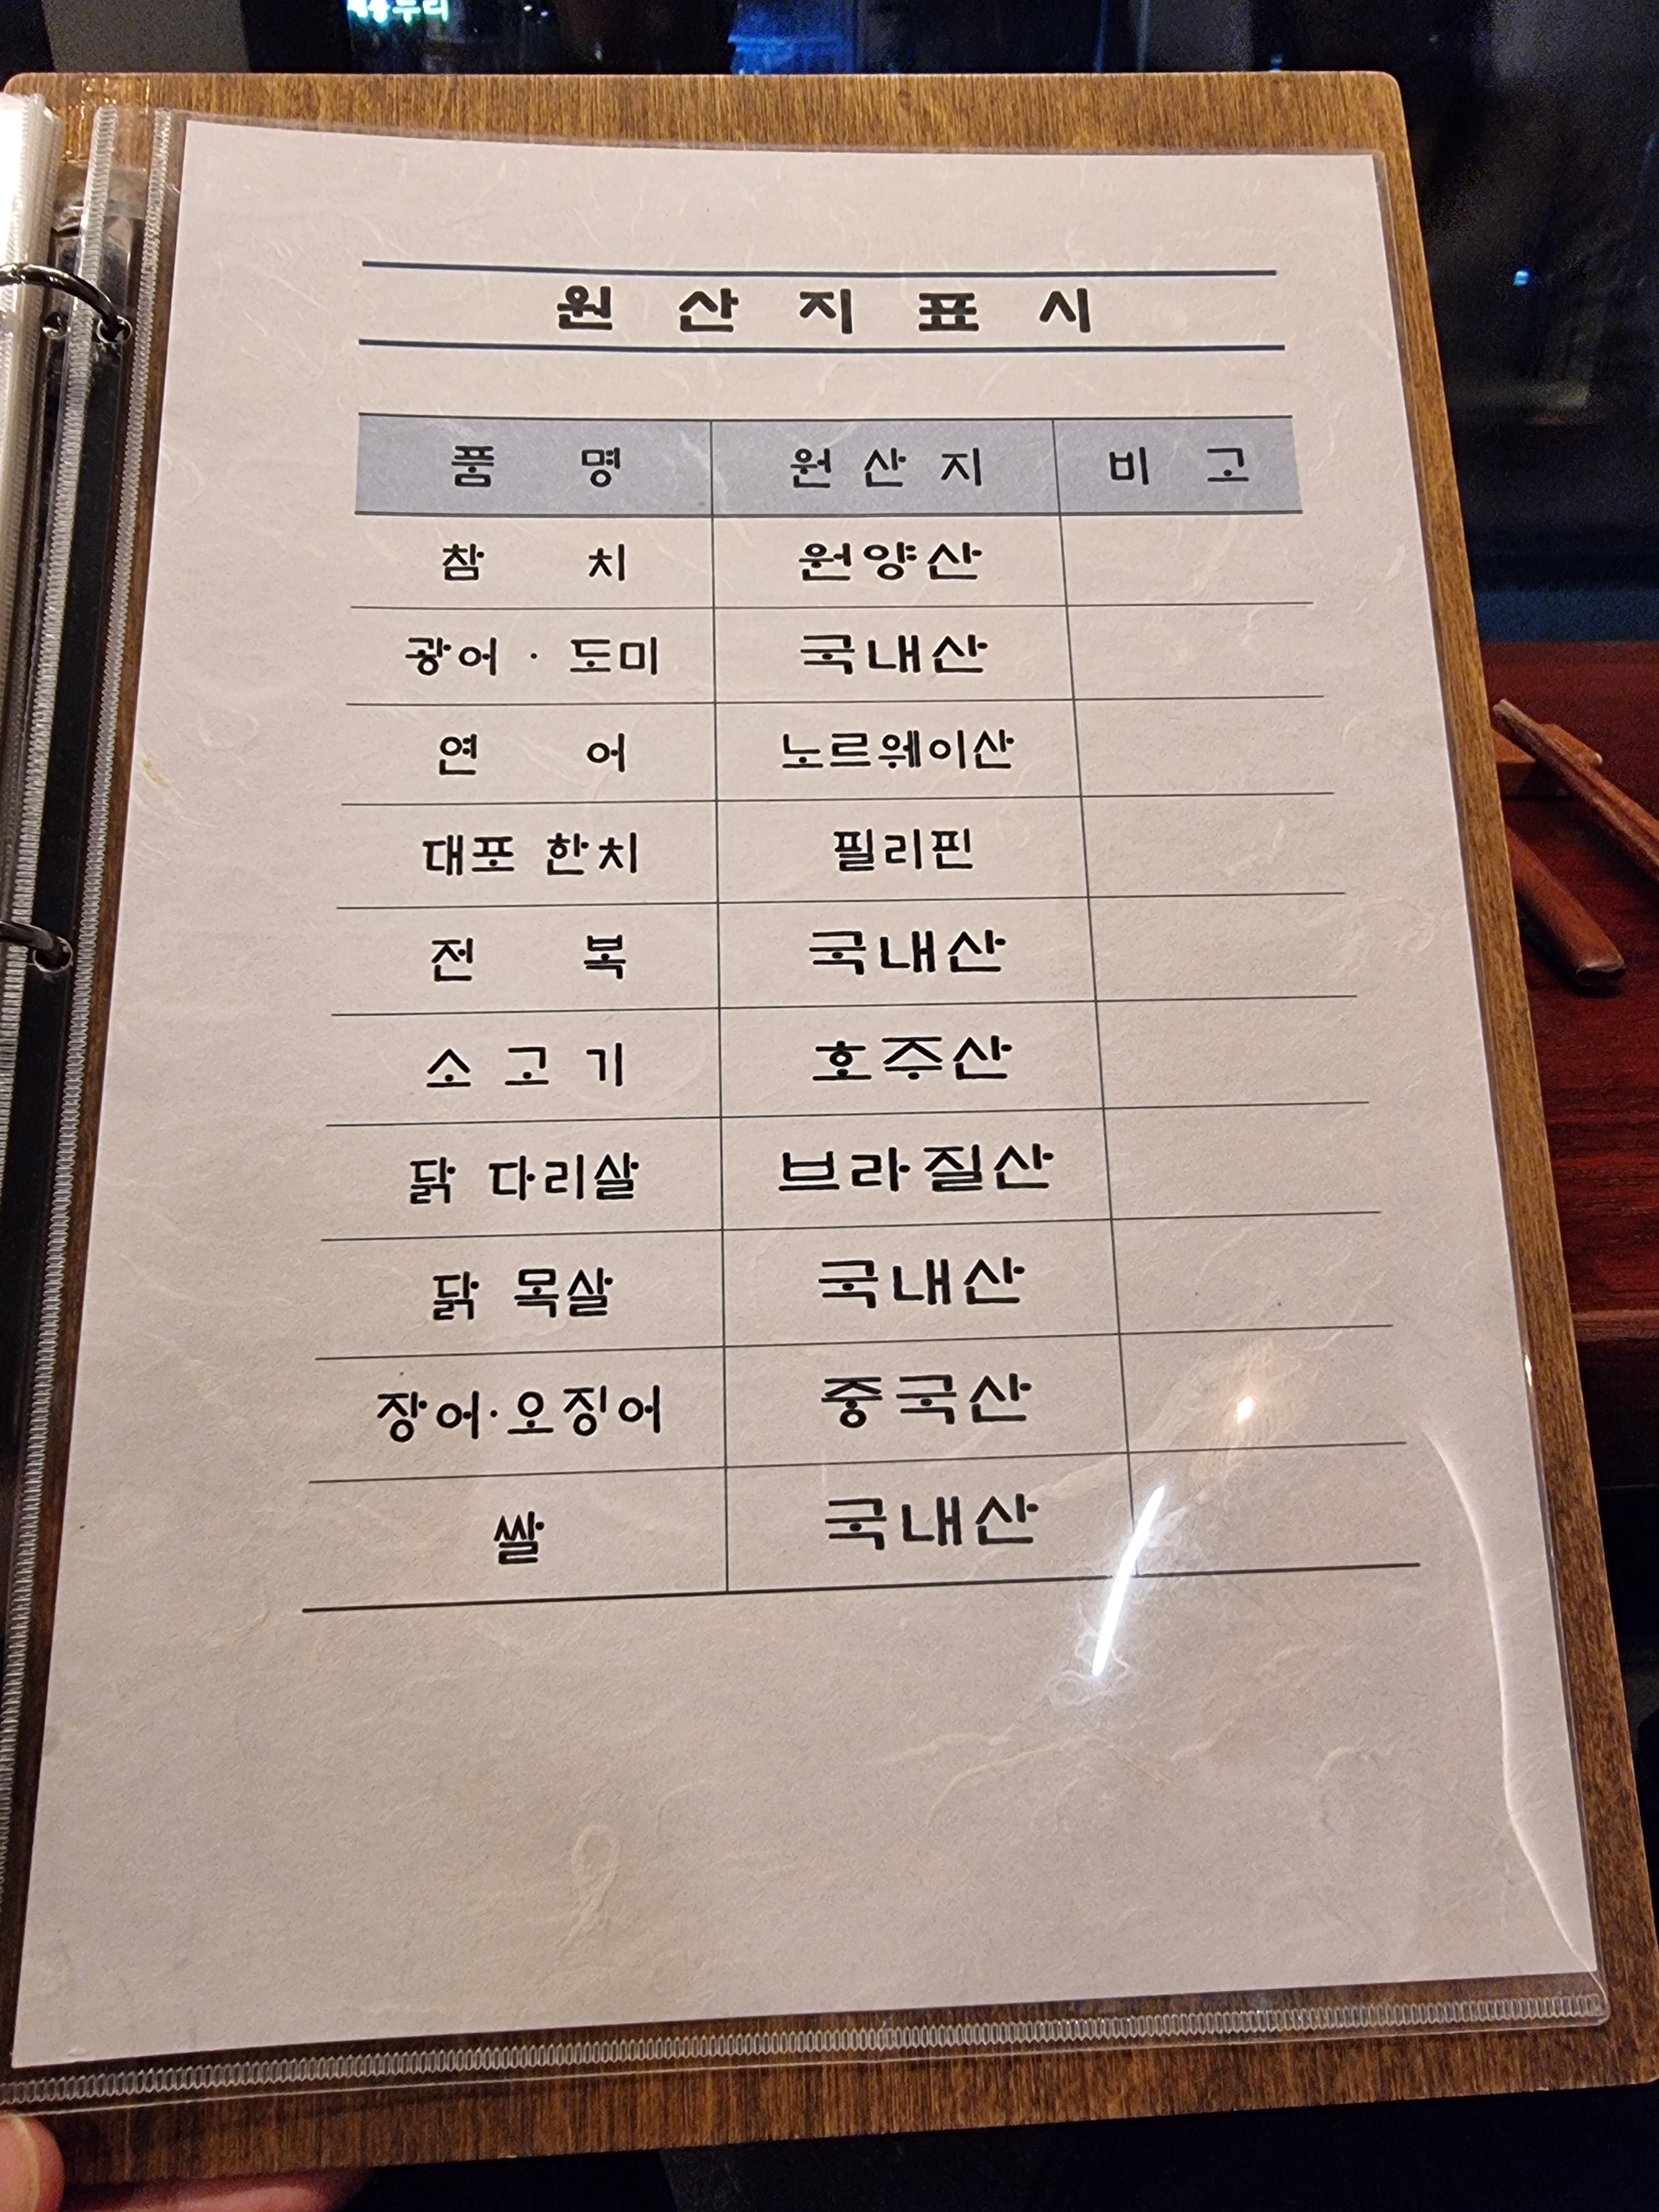 원 산 지 표 시
품 명 원 산 지 비 고
참 치 원양산
광어 · 도미 국내산
연 어 노르웨이산
대포 한치 필리핀
전 복 국내산
소 고 기 호주산
닭 다리살 브라질산
닭 목살 국내산
장어·오징어 중국산
쌀 국내산